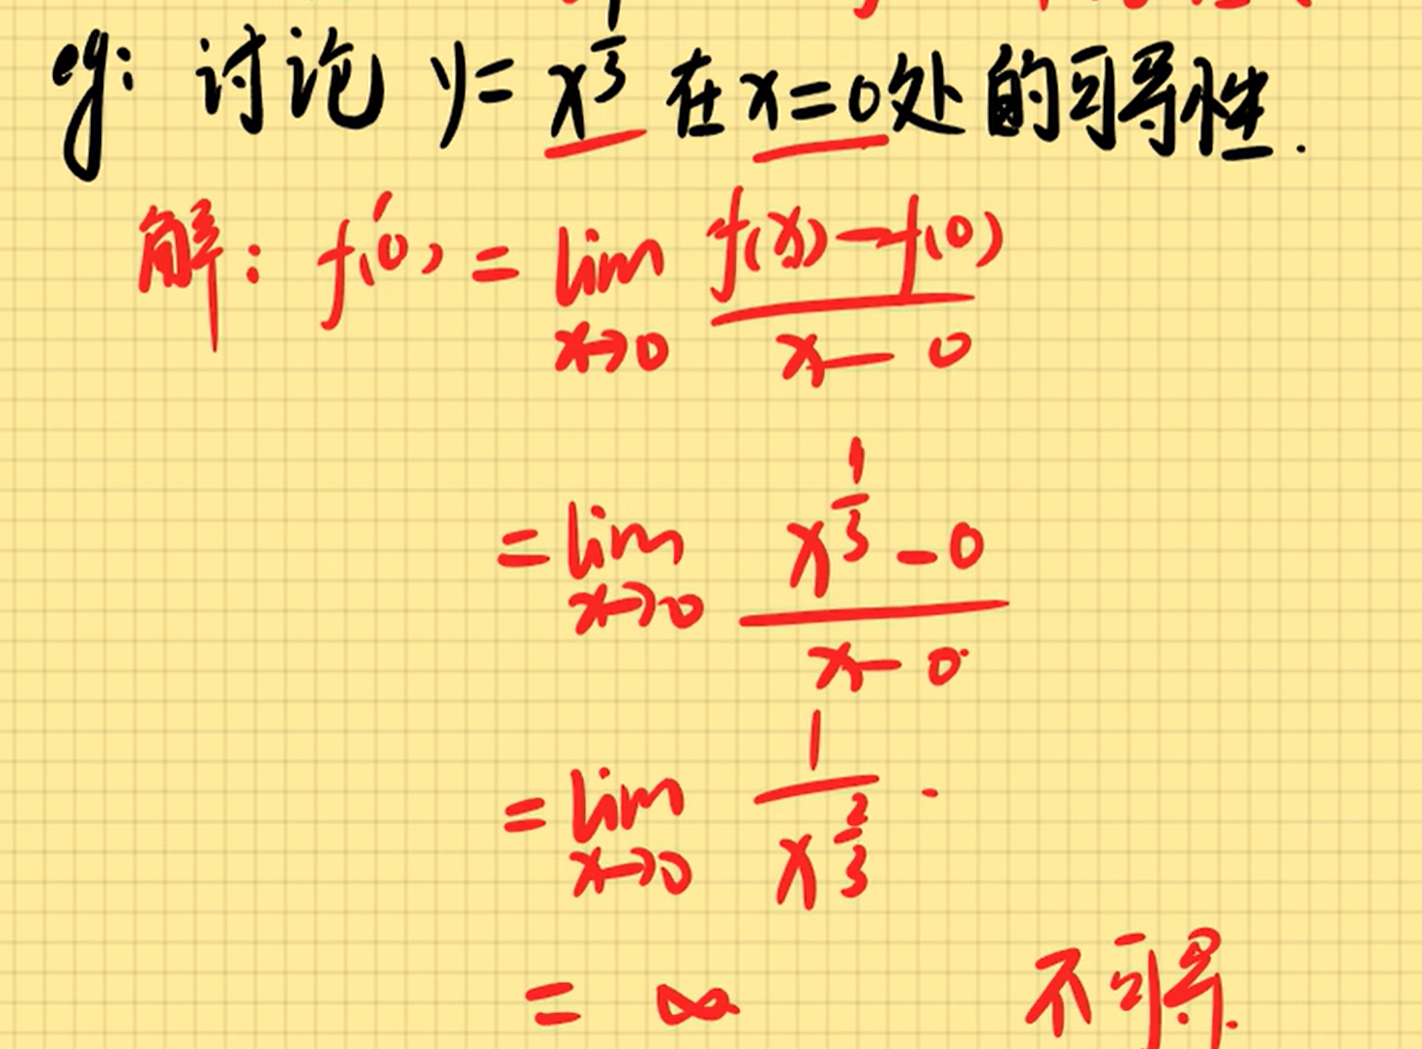 eg: 讨论 y = x^{\frac{1}{3}} 在 x=0 处的可导性.
解: f'(0) = \lim_{x \to 0} \frac{f(x)-f(0)}{x-0}
= \lim_{x \to 0} \frac{x^{\frac{1}{3}}-0}{x-0}
= \lim_{x \to 0} \frac{1}{x^{\frac{2}{3}}}.
= ∞ 不可导.